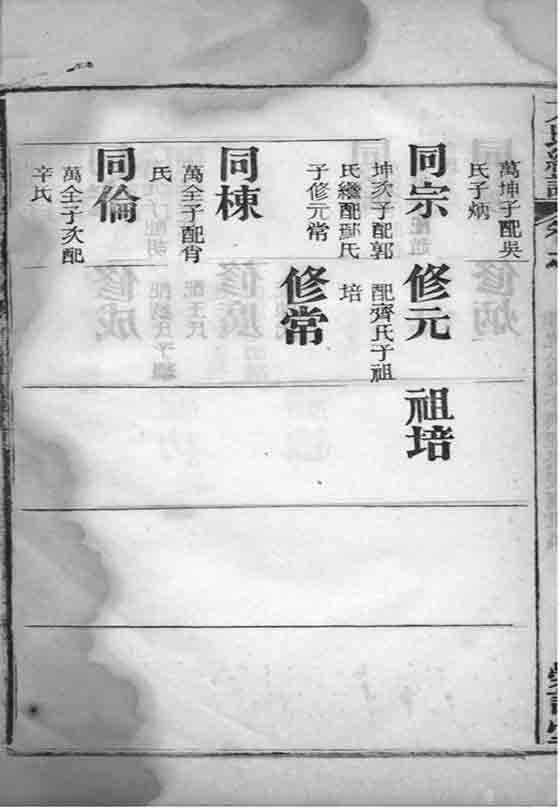 萬坤子配吳
氏子炳
同宗
坤次子配郭
氏繼配鄢氏
子修元常
同棟
萬全子配肖
氏
同倫
萬全子次配
辛氏
修元
配齊氏子祖
培
修常
祖培